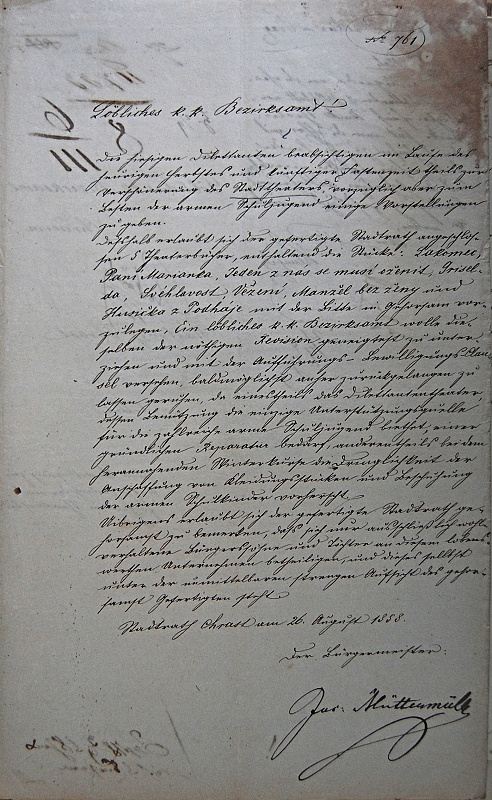 No 761
Löbliches k. k. Bezirksamt!
Die hiesigen Dilettanten beabsichtigen im Laufe des
heurigen Herbstes und künftiger Fastenzeit theils zur
Verschönerung des Stadttheaters, vorzüglich aber zum
Besten der armen Schuljugend einige Vorstellungen
zu geben.
Deshalb erlaubt sich der gefertigte Stadtrath angeschlos-
sen 8 Theaterbücher, enthaltend die Stücke: Lakomec,
Paní Marianka, Jeden z nás se musí oženit, Grisel-
da, Svéhlavost, Vězení, Manžel bez ženy und
Husička z Podháje mit der Bitte in Gehorsam vor-
zulegen, Ein löbliches k. k. Bezirksamt wolle die-
selben der nöthigen Revision geneigtest zu unter-
ziehen und mit der Aufführungs-Bewilligungs Clau-
sel versehen, baldmöglichst anher zurückgelangen zu
lassen geruhen, da einestheils das Dilettantentheater,
dessen Benützung die einzige Unterstützungsquelle
für die zahlreiche arme Schuljugend liefert, einer
gründlichen Reparatur bedarf, anderentheils bei dem
herannahenden Winterkurse die Dringlichkeit der
Anschaffung von Kleidungsstücken und Beschuhung
der armen Schulkinder vorherrscht.
Uibrigens erlaubt sich der gefertigte Stadtrath ge-
horsamst zu bemerken, daß sich nur ausschließlich wohl-
verhaltene Bürgerssöhne und Töchter an diesem lobens-
werthen Unternehmen betheiligen, und dieses selbst
unter der unmittelbaren strengen Aufsicht des gehor-
samst Gefertigten steht.
Stadtrath Chrast am 26. August 1858.
Der Bürgermeister:
Jos: